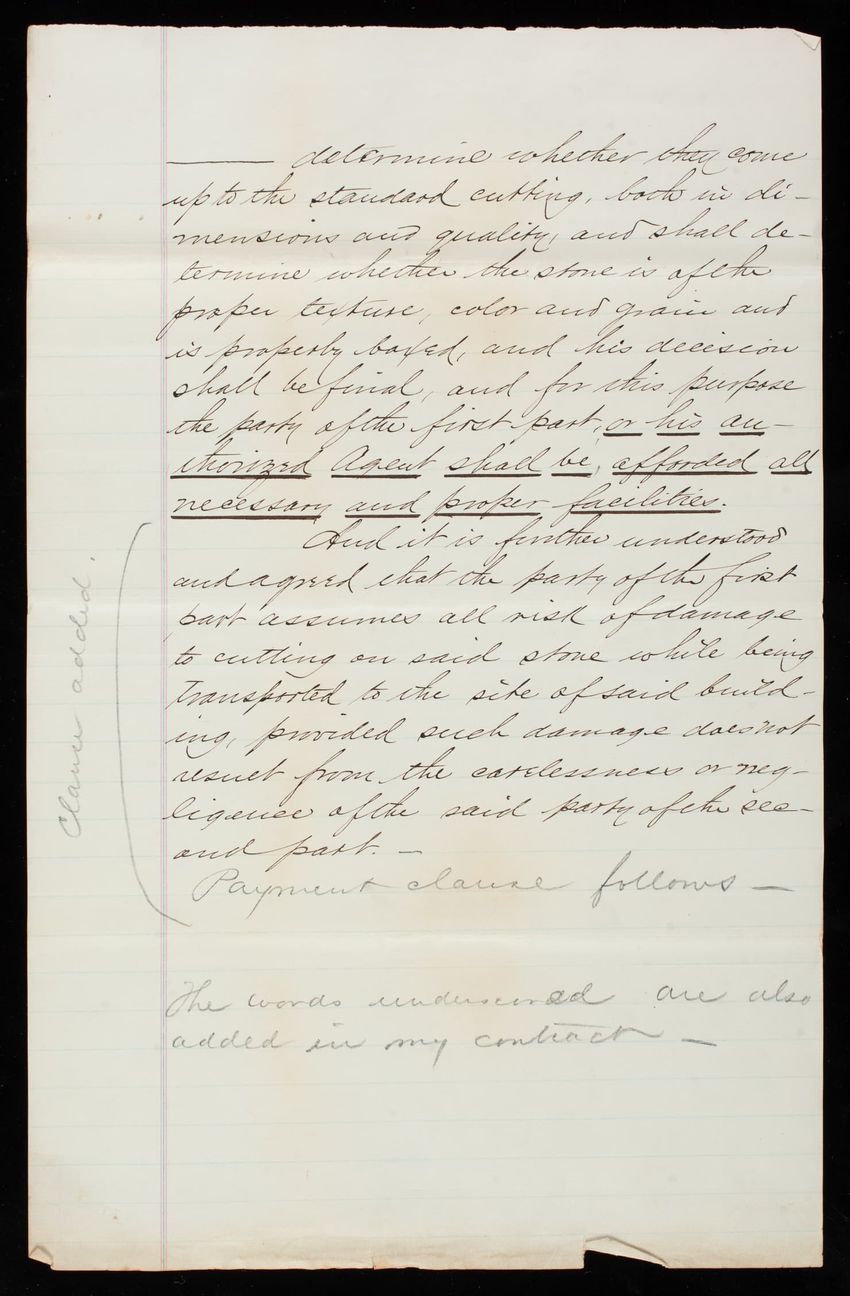 ——— determine whether they come
up to the standard cutting, both in di-
mensions and quality, and shall de-
termine whether the stone is of the
proper texture, color and grain and
is properly boxed, and his decision
shall be final, and for this purpose
the party of the first part, or his au-
thorized Agent shall be, afforded all
necessary and proper facilities.
And it is further understood
and agreed that the party of the first
part assumes all risk of damage
to cutting on said stone while being
transported to the site of said build-
ing, provided such damage does not
result from the carelessness or neg-
ligence of the said party of the sec-
ond part. —
Clause added.
Payment clause follows —
The words underscored are also
added in my contract —